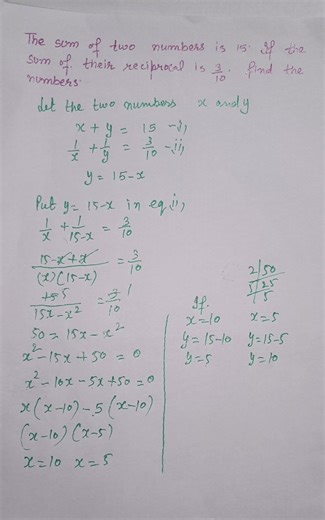 The sum of two numbers is 15. If the
sum of their reciprocal is 3/10. find the
numbers.
Let the two numbers x and y
x + y = 15 -i,
1/x + 1/y = 3/10 -ii,
y = 15-x
Put y = 15-x in eq ii,
1/x + 1/15-x = 3/10
15-x+x/(x)(15-x) = 3/10
15/15x-x² = 3/10 1
50 = 15x - x²
x² - 15x + 50 = 0
x² - 10x - 5x + 50 = 0
x(x-10) - 5(x-10)
(x-10)(x-5)
x=10 x=5
2|50
5|25
|5
If
x=10 x=5
y=15-10 y=15-5
y=5 y=10